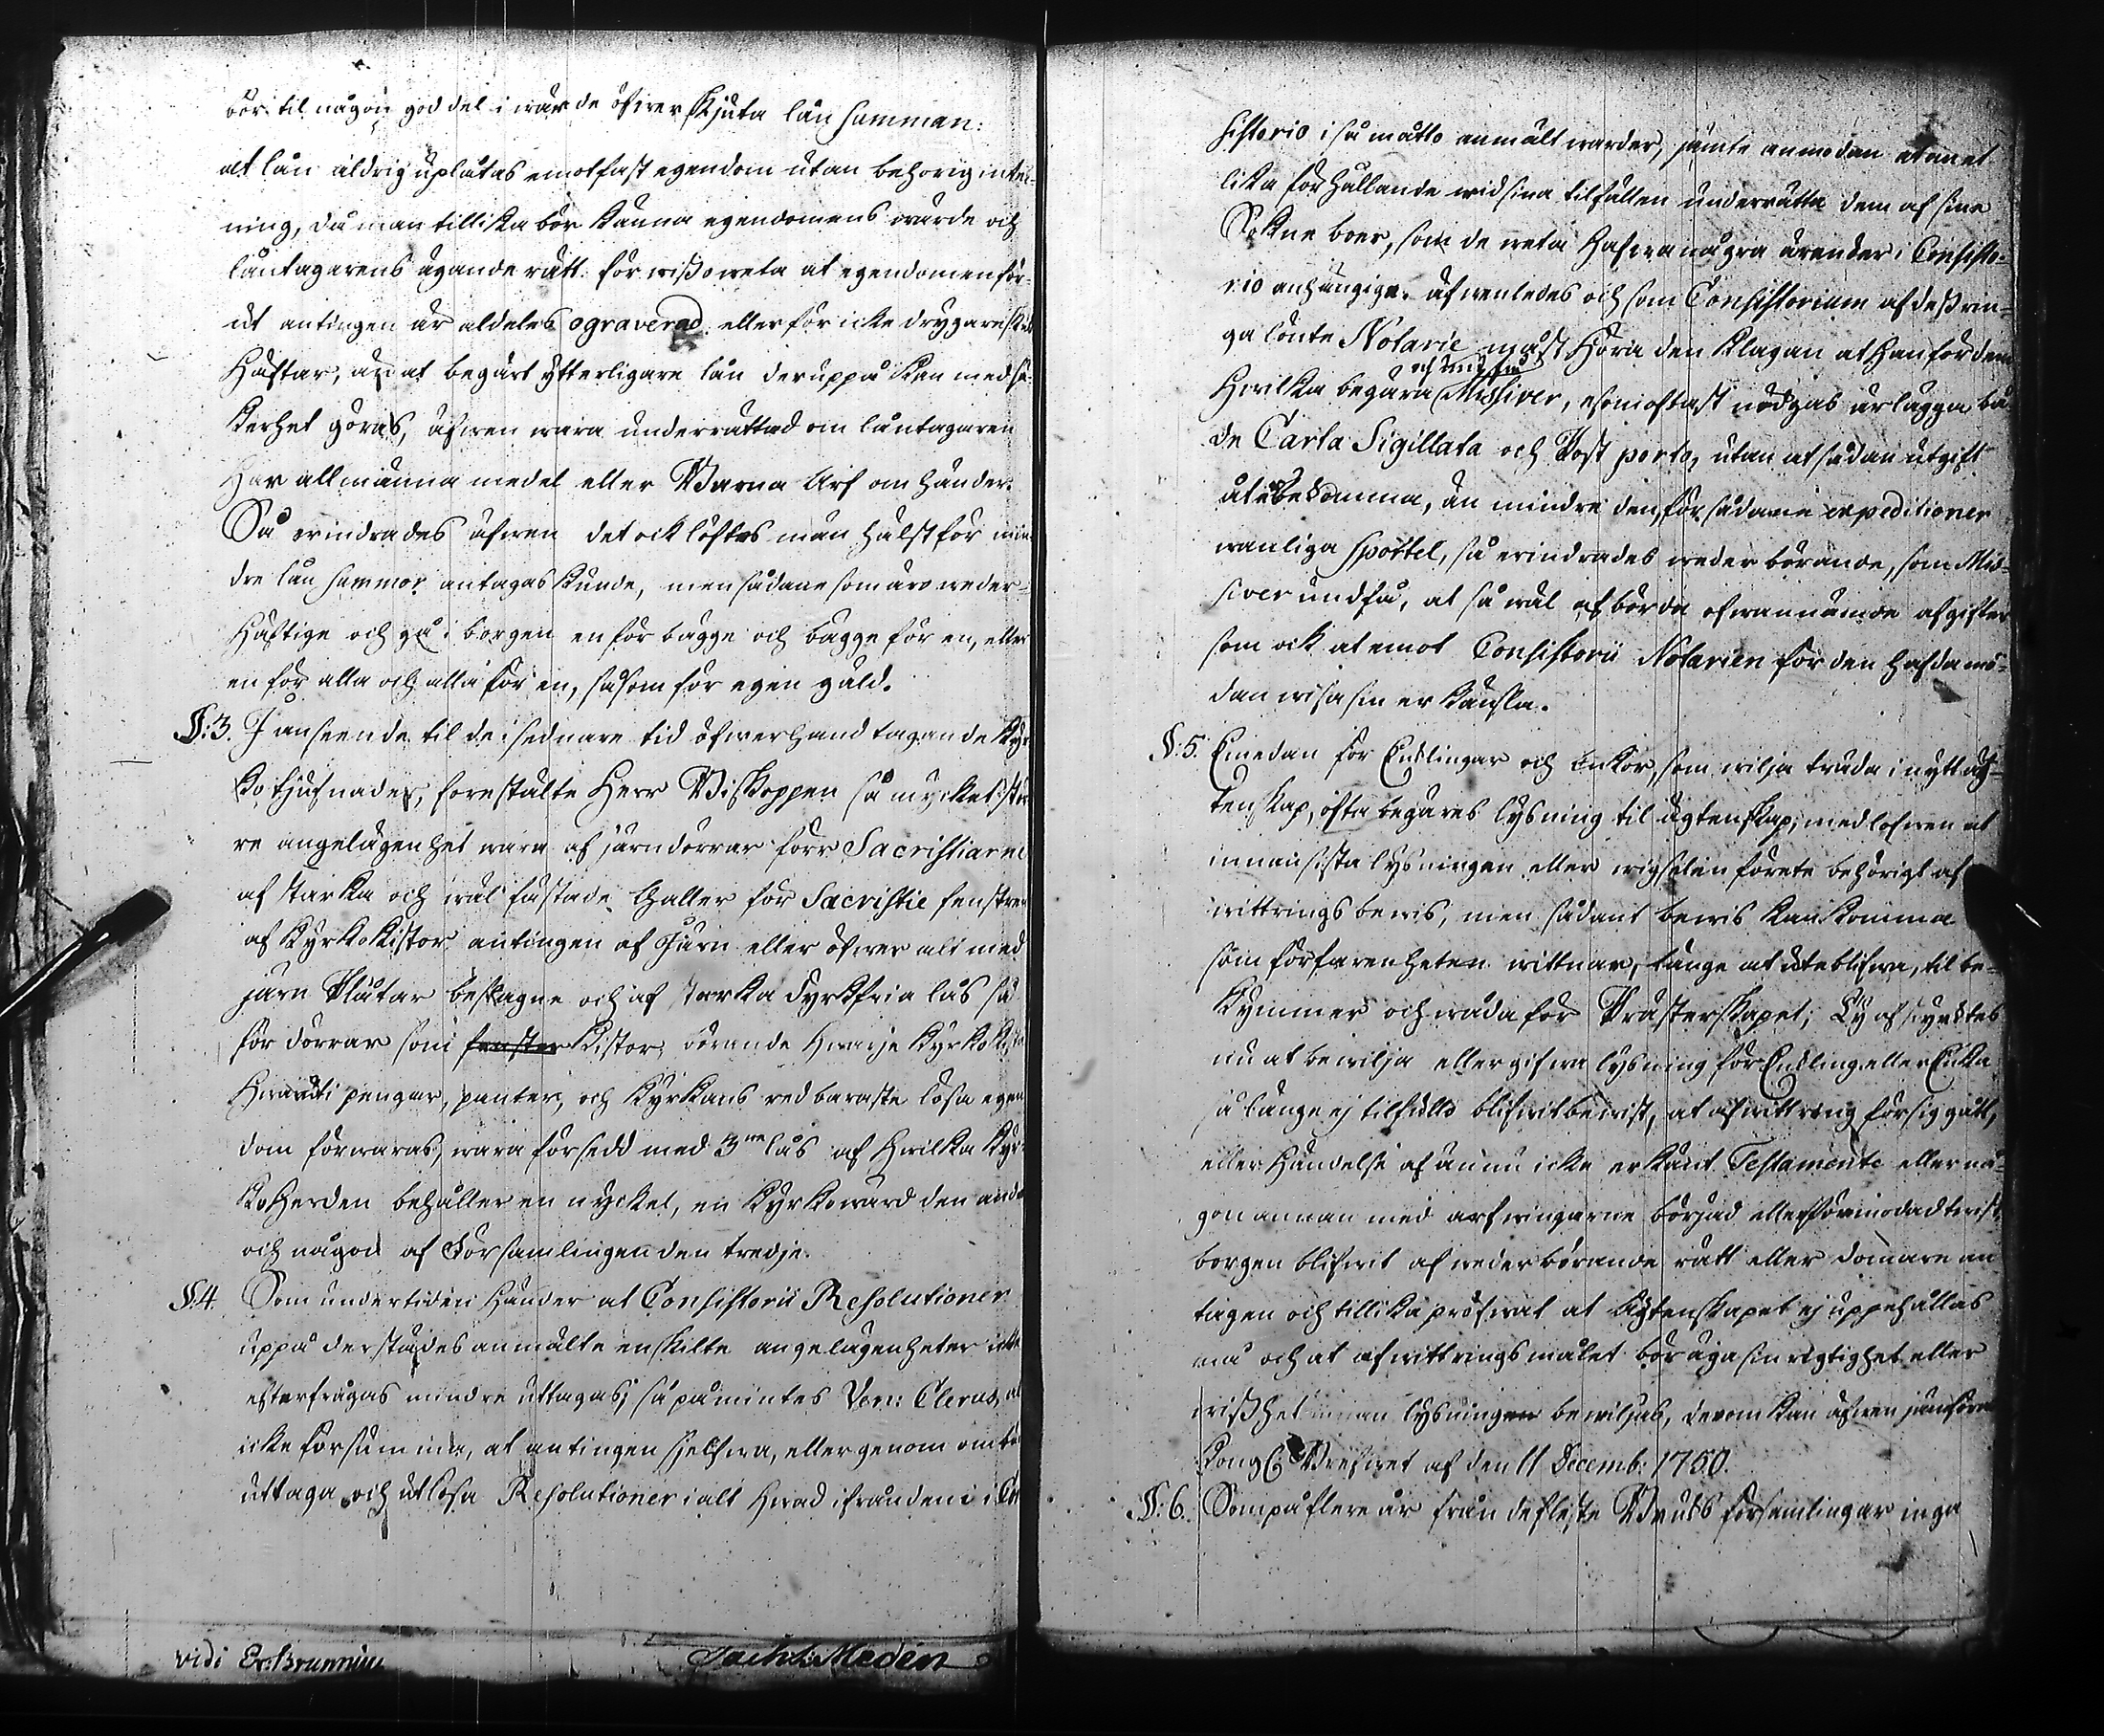 bör til någon god del i wärde öfwer skjuta lån summan:
at lån aldrig uplåtas emot fast egendom utan behörig inteck-
ning, då man tillika bör känna egendomens wärde och
låntagarens ägande rätt. för wisso weta at egendomen för-
ut antingen är aldeles ograverad eller för icke drygare skuld
häftar, än at begärt ytterligare lån deruppå kan med sä-
kerhet göras, äfwen wara underrättad om låntagaren
Har allmänna medel eller Barna Arf om händer.
Så erindrades äfwen det ock löftes män hälst för min-
dre lån summor antagas kunde, men sådane som äro weder-
häftige och gå i borgen en för bägge och bägge för en, eller
en för alla och alla för en, såsom för egen gäld.
§: 3. I anseende til de i sednare tid öfwerhand tagande Kyr-
ko tjufnader, förestälte Herr Biskoppen så mycket stör-
re angelägenhet wara af järndörrar förr Sacristiarne
af starka och wäl fästade Galler för Sacristie fenstren
af Kyrkokistor antingen af Järn eller öfwer alt med
järn Plåtar beslagne och af starka dyrkfria lås så
för dörrar som fenster Kistor, börande hwarje Kyrkokista
Hwaruti pengar, panter, och Kyrkans redbaraste lösa egen
dom förwaras, wara försedd med 3ne lås af hwilka Kyr-
koherden behåller en nyckel, en Kyrkoward den andra
och någon af Församlingen den tredje.
§. 4. Som undertiden händer at Consistorii Resolutioner
uppå derstädes anmälte enskilte angelägenheter icke
efterfrågas mindre uttagas; så påmintes Ven: Clerus, at
icke försumma, at antingen sjelfwa, eller genom ombud
uttaga och utlösa Resolutioner i alt hwad ifrån dem i Con
vidi Er: Brunnius
Medén
sistorio i så måtto anmält warder, jämte anmodan at
lika förhållande wid sina tilfällen underrätta dem af sine
Sokne boer, som de weta hafwa några ärender i Consisto-
rio anhängige. Äfwenledes och som Consistorium af deß rin-
ga lönte Notarie måst höra den klagan at han för dem
och undfå
Hwilka begära Missiver, esomoftast nödgas utlägga bå-
de Carta Sigillata och Post porto, utan at sådan utgift
återbekomma, än mindre den, för sådane expeditioner
wanliga sportel, så erindrades weder börande, som Mis-
siver undfå, at så wäl afbörda ofwannämde afgifter
som ock at emot Consistorii Notarien för den hafda mö-
dan wisa sin erkänsla.
§: 5. Emedan för Enklingar och Enkor, som wilja träda i nytt äg-
tenskap, ofta begäres lysning til ägtenskap, med löfwen at
innan sista lysningen eller wigselen förete behörigt af
wittrings bewis, men sådant bewis kan komma
som förfarenheten wittnar, länge at uteblifwa, til be-
kymmer och wåda för Prästerskapet; Ty afsyndes
nu at bewilja eller gifwa lysning för Enkling eller Enka
så länge ej tilfullo blifwit bewist, at afwittring försiggått,
eller händelse af ännu icke erkänt Testamente eller nå-
gon annan med arfwingarne börjad eller förmodad twist
borgen blifwit af weder börande rätt eller domare an
tagen och tillika pröfwat at Ägtenskapet ej uppehållas
må och at afwittrings målet bör äga sin rigtighet eller
wißhet innan lysningen bewiljas, derom kan äfwen jämföras
Kongl: Brefwet af den 11 Decemb: 1750.
§: 6. Som på flere år från de fleste Bruks församlingar inga